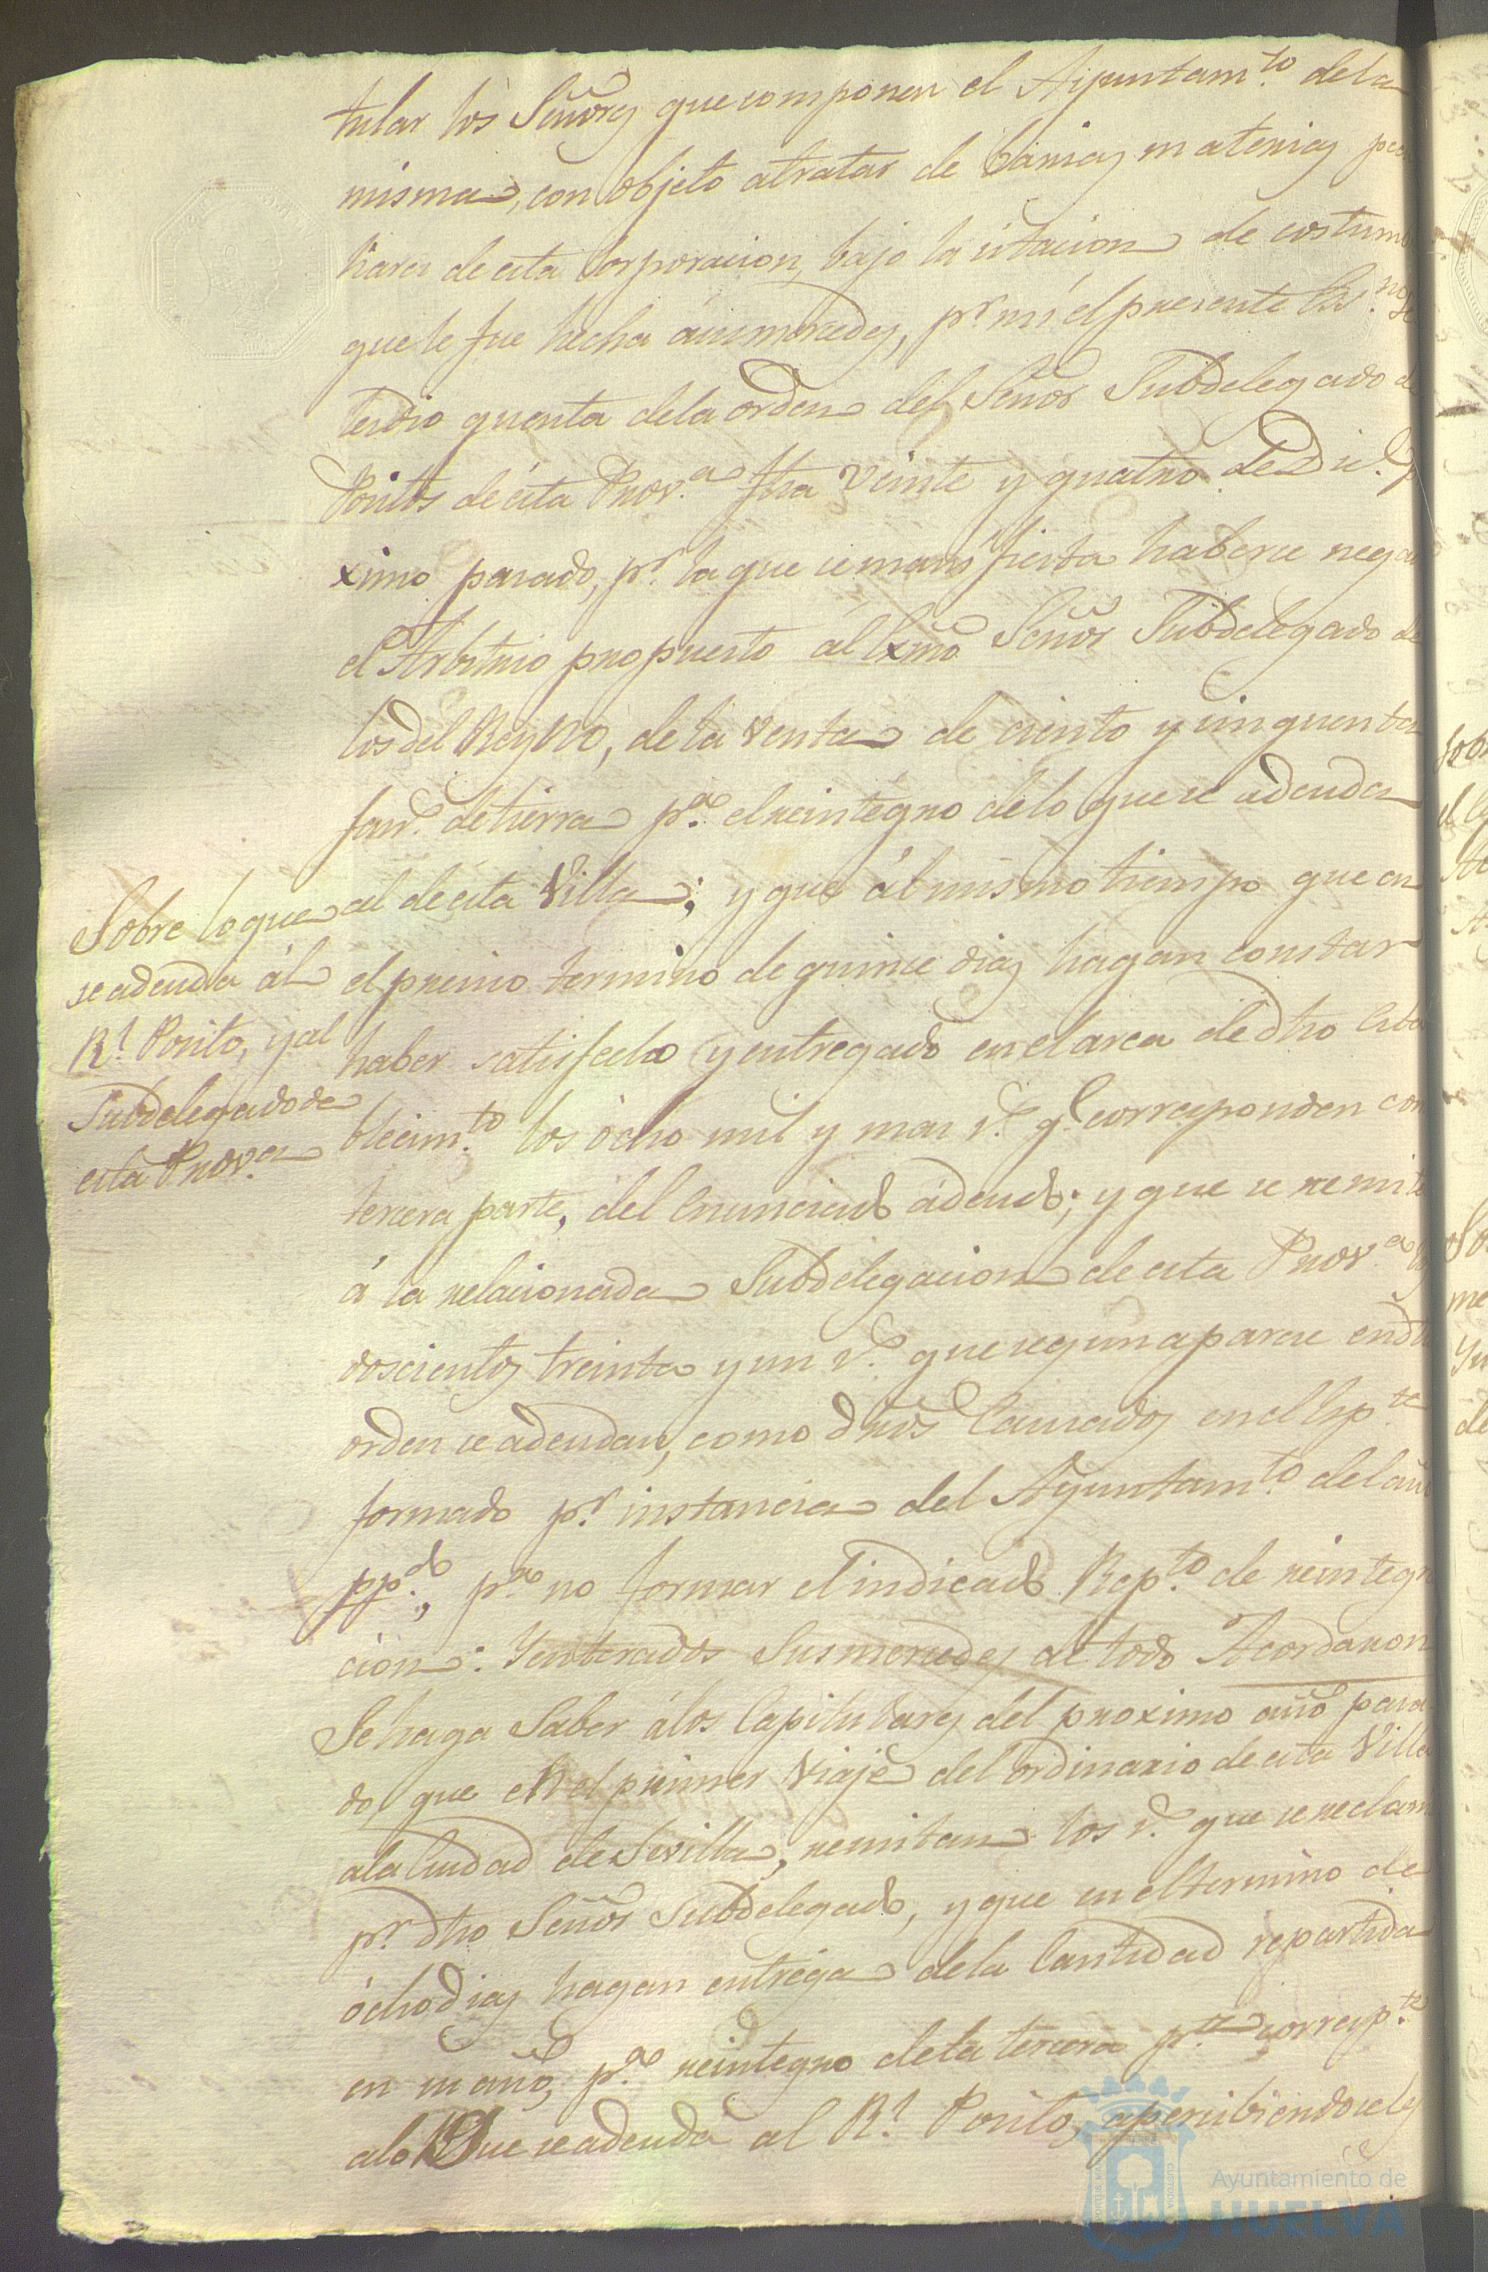 tular los Señores que componen el Ayuntam.to dela
misma, con objeto atratar de barias materias pecu
hares de esta Corporacion, bajo la citacion de costumb
que le fue hecha ásusmercedes, p.r mi el presente Es.no se
lesdio quenta dela orden del Señor Subdelegado de
Positos de ésta Prov.a fha veinte y quatro de Dic.e p
ximo pasado, p.r la que semanifiesta haberse nega
el Arbitrio propuesto al Exmo Señor Subdelegado de
los del Reyno, de la venta de ciento y cinquenta
fan.s de tierra p.a el reintegro delo que se adeuda
al de esta Villa; y que ál mismo tiempo que en
el preciso termino de quince dias hagan constar
haber satisfecho y entregado en el arca de dho Esta
blecim.to los ócho mil y mas r.s q.e corresponden con
tercera parte, del enunciado adeudo; y que se remite
á la relacionada Subdelegacion de esta Prov.a
doscientos treinta y un r.s que segun aparece en d
orden se adeudan, como dros Causados en el Esp.te
formado p.r instancia del Ayuntam.to del año
pp.do, p.a no formar el indicado Rep.to de reintegra
cion: Yenterados Susmercedes de todo Acordaron
Se haga Saber álos Capitulares del proximo año pasa
do, que en el primer viaje del ordinario de esta Villa
ala Ciudad de Sevilla, remitan los r.s que se reclam
p.r dho Señor Subdelegado, y que en el termino de
ócho dias hagan entréga dela Cantidad repartida
en su año, p.a reintegro dela tercera p.te corresp.te
alo que se adeuda al R.l Posito, apercibiendoseles
Sobre lo que
se adeuda ál
R.l Posito, y al
Subdelegado de
esta Prov.a
Ayuntamiento de
HUELVA